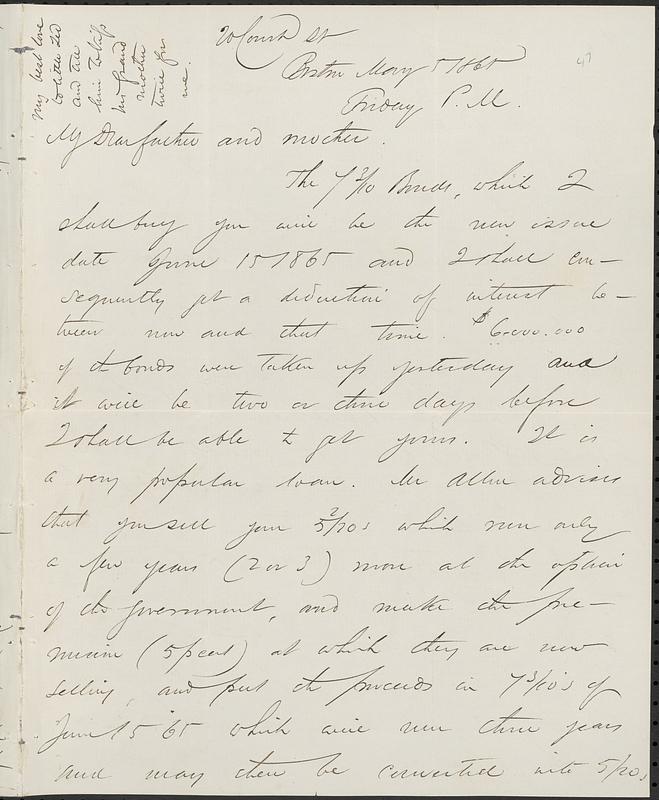 20 Court St
Boston May 5 1865
Friday P.M.
47
My best love
to little Ted
and tell
him to kiss
his grand
mother
twice for
me.
My Dear father and mother.
The 7 3/10 Bonds, which I
shall buy you will be the new issue
date June 15 1865 and I shall con-
sequently get a deduction of interest be-
tween now and that time. $6.000.000
of the bonds were taken up yesterday and
it will be two or three days before
I shall be able to get yours. It is
a very popular loan. Mr Allen advises
that you sell your 5/20s which run only
a few years (2 or 3) more at the option
of the government, and make the pre-
mium (5 pcent) at which they are now
selling, and put the proceeds in 7 3/10s of
June 15 '65 which will run three years
and may then be converted into 5/20s